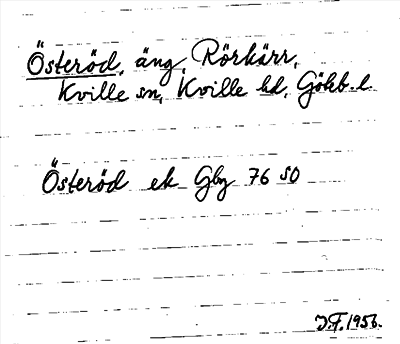 Österöd, äng, Rörkärr,
Kville sn, Kville hd, Göteb. l.
Österöd ek Gby 76 SO
J.F. 1956.